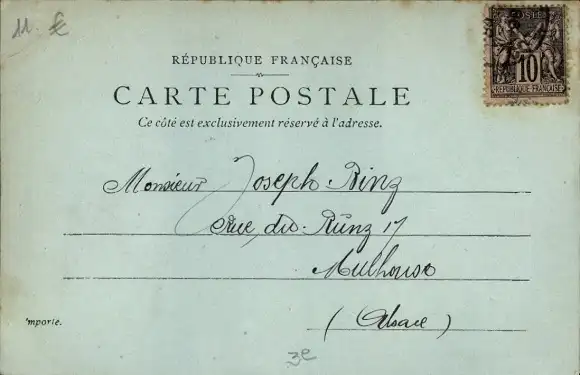 11. €
POSTES
10
REPUBLIQUE FRANÇAISE
RÉPUBLIQUE FRANÇAISE
CARTE POSTALE
Ce côté est exclusivement réservé à l'adresse.
Monsieur Joseph Binz
Rue du Runz 17
Mulhouse
(Alsace)
'mporte.
3e